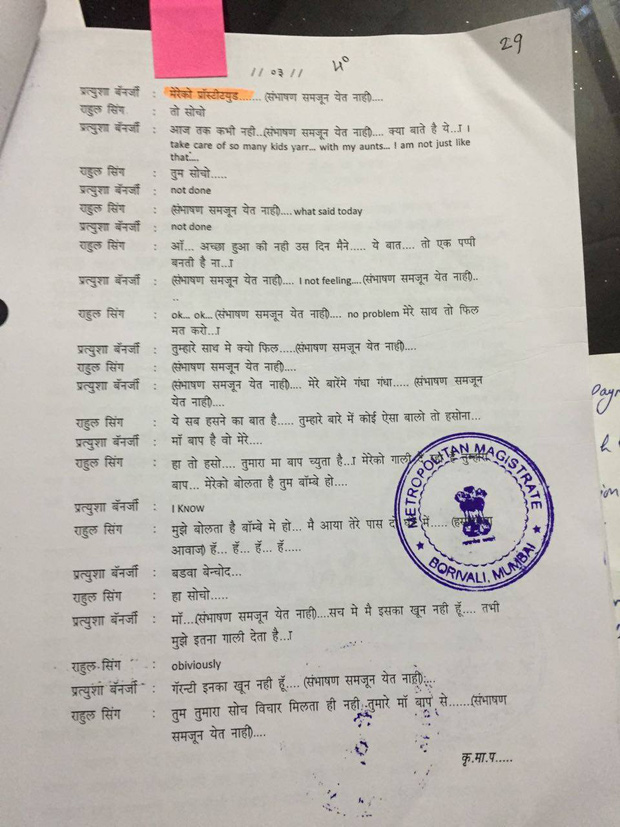 29
// ०३ //
प्रत्युशा बॅनर्जी : मेरेको प्रॉस्टीटयुड....... (संभाषण समजून येत नाही)....
राहुल सिंग : तो सोचो
प्रत्युशा बॅनर्जी : आज तक कभी नही..(संभाषण समजून येत नाही).... क्या बाते है ये...I I
take care of so many kids yarr... with my aunts... I am not just like
that....
राहुल सिंग : तुम सोचो.....
प्रत्युशा बॅनर्जी : not done
राहुल सिंग : (संभाषण समजून येत नाही).... what said today
प्रत्युशा बॅनर्जी : not done
राहुल सिंग : ऑ... अच्छा हुआ की नही उस दिन मैने..... ये बात.... तो एक पप्पी
बनती है ना...I
प्रत्युशा बॅनर्जी : (संभाषण समजून येत नाही).... I not feeling....(संभाषण समजून येत नाही)..
..
राहुल सिंग : ok... ok... (संभाषण समजून येत नाही).... no problem मेरे साथ तो फिल
मत करो...I
प्रत्युशा बॅनर्जी : तुम्हारे साथ मे क्यो फिल.....(संभाषण समजून येत नाही)....
राहुल सिंग : (संभाषण समजून येत नाही)....
प्रत्युशा बॅनर्जी : (संभाषण समजून येत नाही).... मेरे बारेंमे गंधा गंधा..... (संभाषण समजून
येत नाही)....
राहुल सिंग : ये सब हसने का बात है..... तुम्हारे बारे में कोई ऐसा बालो तो हसोना...
प्रत्युशा बॅनर्जी : मॉ बाप है वो मेरे....
राहुल सिंग : हा तो हसो.... तुमारा मा बाप च्युता है...I मेरेको गाली
बाप... मेरेको बोलता है तुम बॉम्बे हो....
प्रत्युशा बॅनर्जी : I KNOW
राहुल सिंग : मुझे बोलता है बॉम्बे मे हो... मै आया तेरे पास में.....
आवाज) हॅ... हॅ... हॅ... हॅ.....
प्रत्युशा बॅनर्जी : बडवा बेन्चोद...
राहुल सिंग : हा सोचो.....
प्रत्युशा बॅनर्जी : मॉ...(संभाषण समजून येत नाही)....सच मे मै इसका खून नही हूँ.... तभी
मुझे इतना गाली देता है...I
राहुल सिंग : obiviously
प्रत्युशा बॅनर्जी : गॅरन्टी इनका खून नही हूँ.... (संभाषण समजून येत नाही)....
राहुल सिंग : तुम तुमारा सोच विचार मिलता ही नही..तुमारे मॉ बाप से......(संभाषण
समजून येत नाही)....
कृ.मा.प.....
METROPOLITAN MAGISTRATE
BORIVALI, MUMBAI